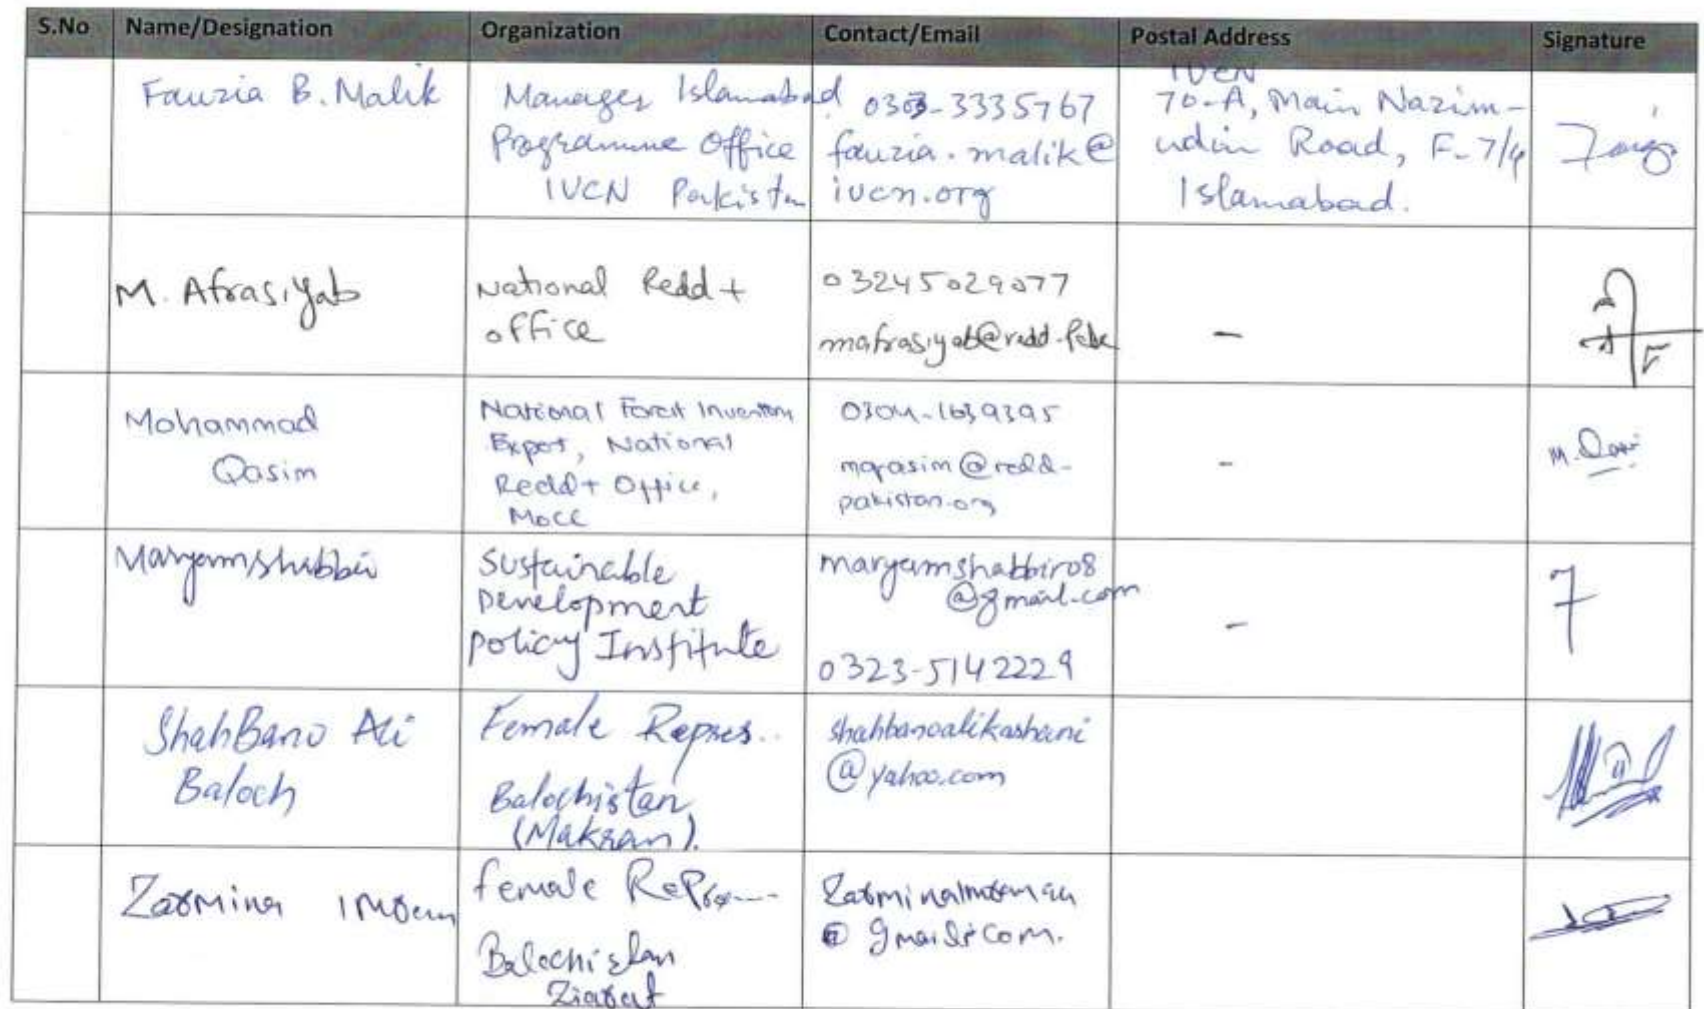 S.No Name/Designation Organization Contact/Email Postal Address Signature
Fauzia B. Malik
Manager Islamabad
Programme Office
IUCN Pakistan
0303-3335767
fauzia.malik@
iucn.org
IUCN
70-A, Main Nazim-
udin Road, F-7/4
Islamabad.
M. Afrasiyab
National Redd+
office
03245029077
-
Mohammad
Qasim
National Forest Inventory
Expert, National
Redd+ Office,
MoCC
0304-1639395
mqasim@redd-
pakistan.org
-
M. Qasim
Maryam Shabbir
Sustainable
Development
policy Institute
maryamshabbir08
@gmail.com
0323-5142229
-
ShahBano Ali
Baloch
Female Repres..
Balochistan
(Makran).
shahbanoalikashani
@yahoo.com
Zarmina
female Repr----
Balochistan
Ziarat
@ gmail.com.